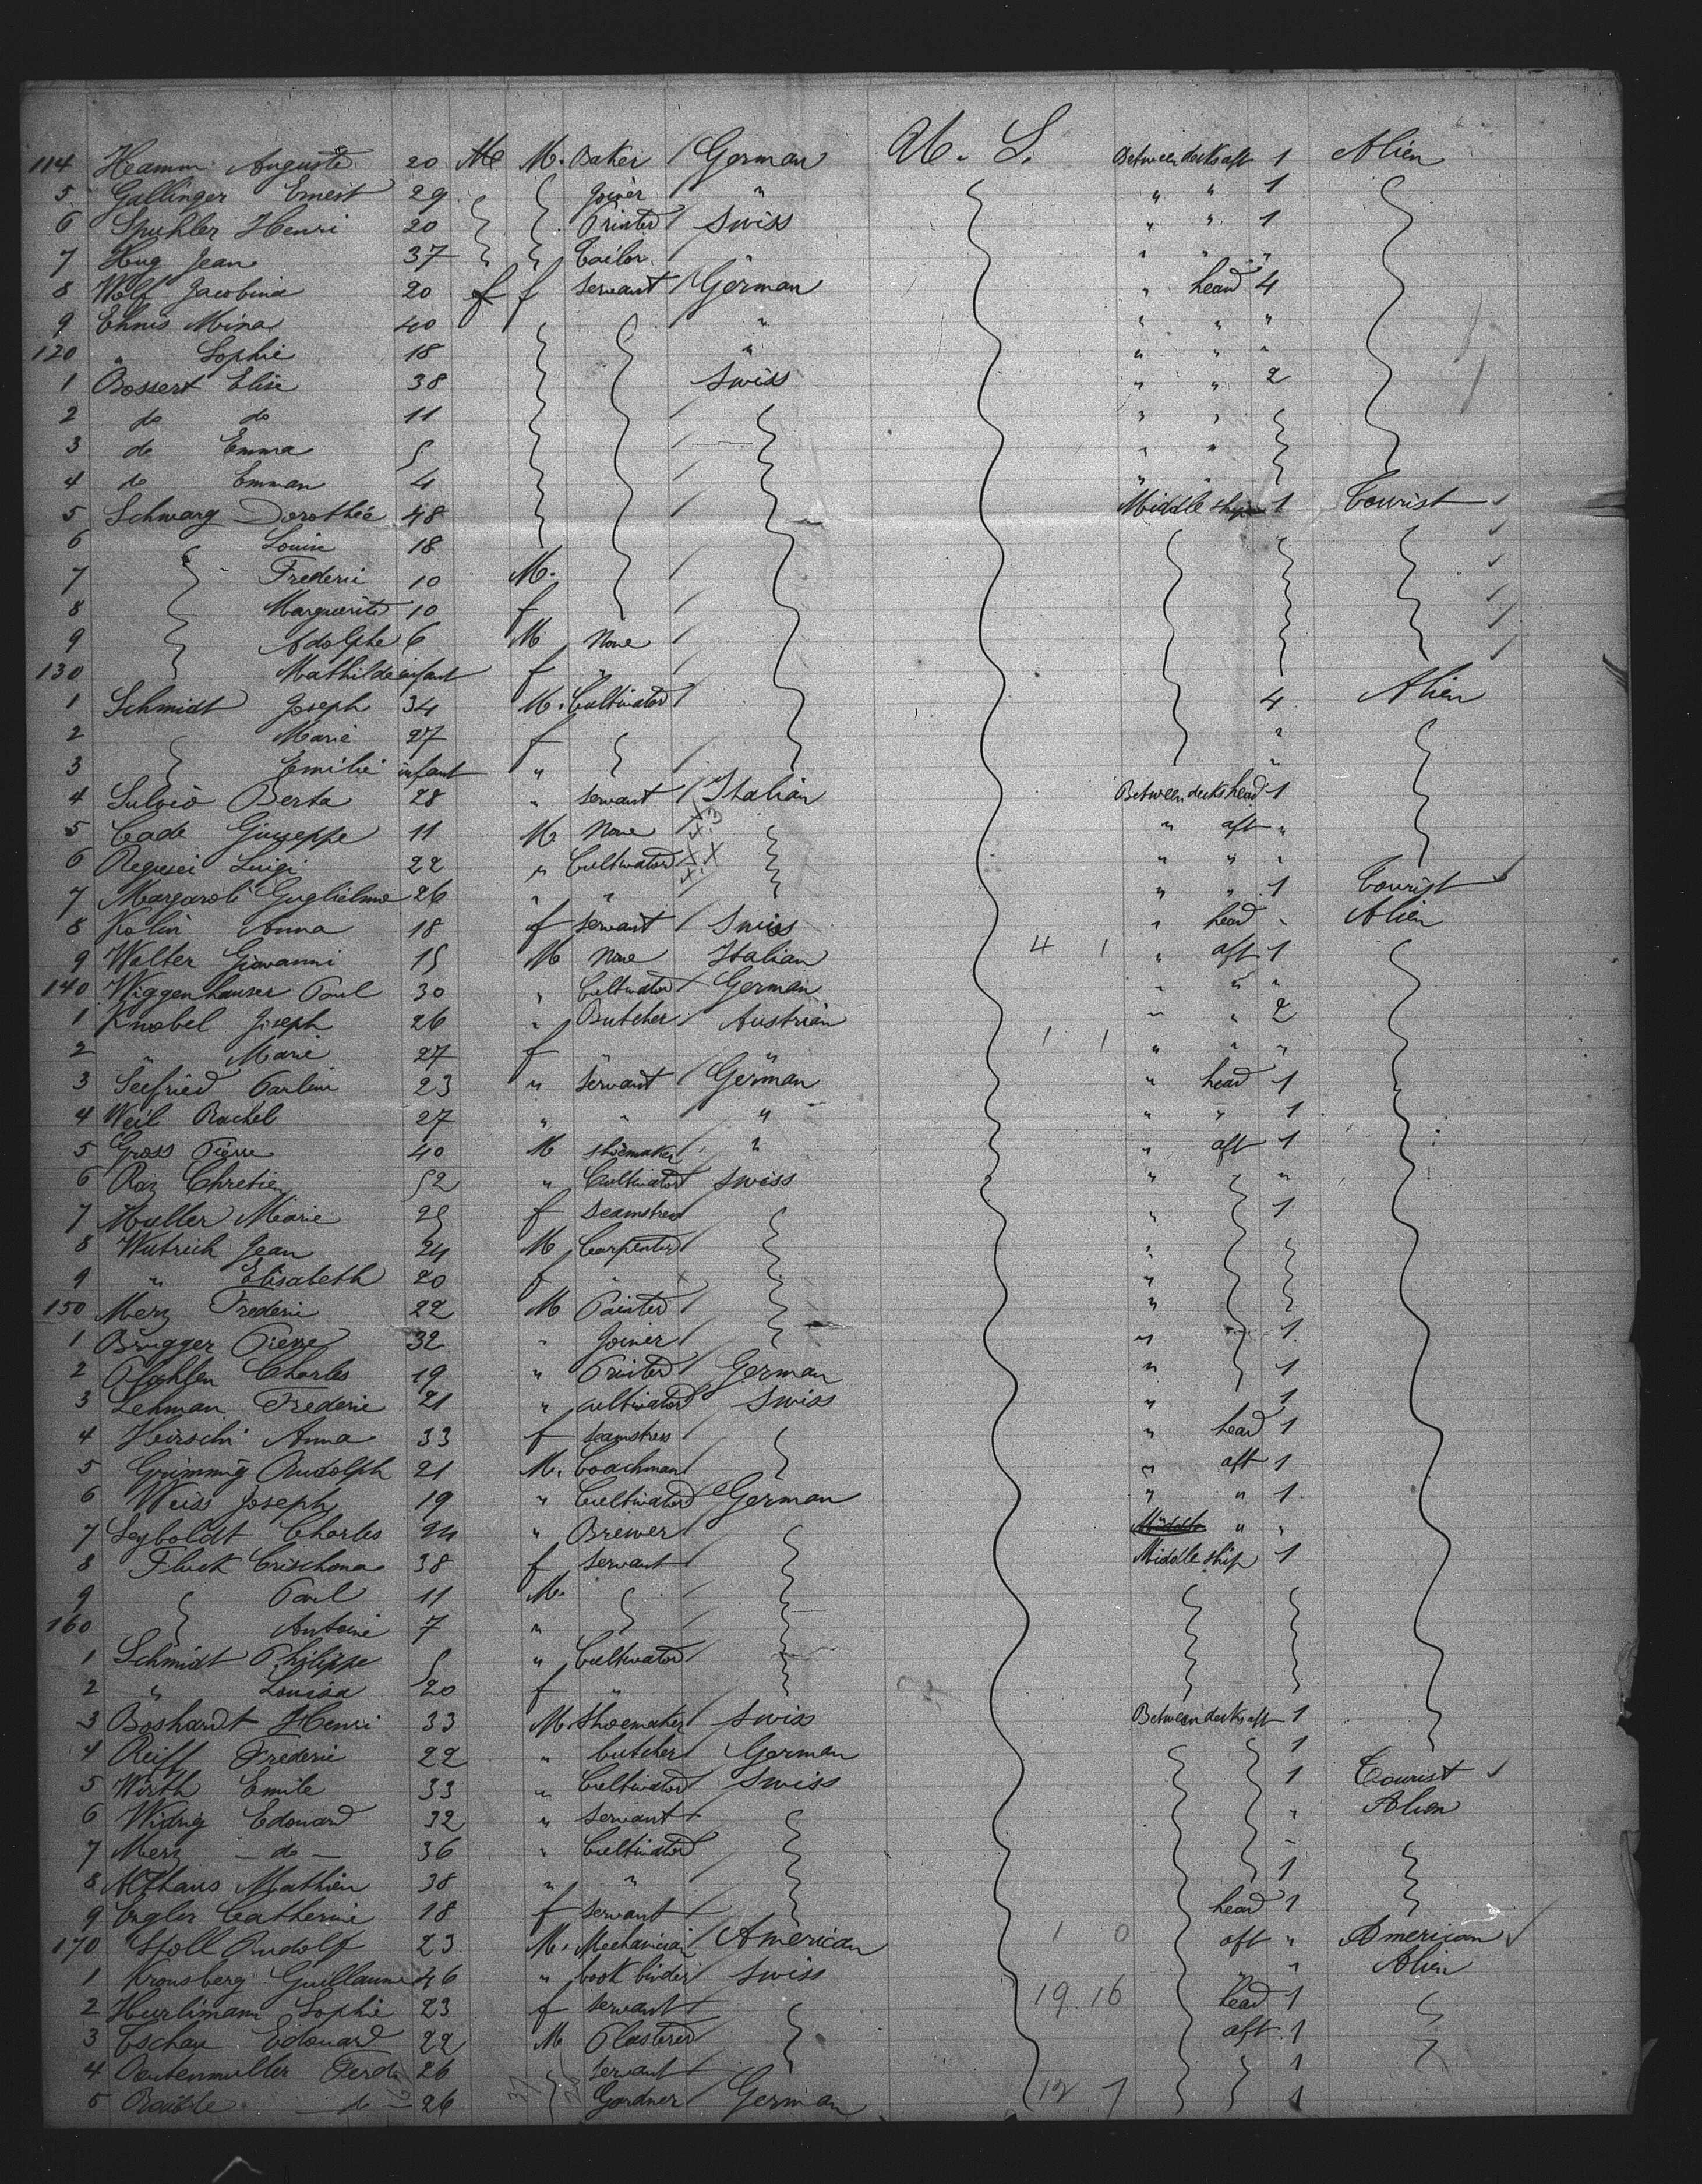 114 Hamm Auguste 20 M M. Baker / German U. S. Between decks aft 1 Alien
5 Gallinger Ernest 29 Joiner / " " " 1
6 Spuhler Henri 20 Printer / Swiss " " 1
7 Hug Jean 37 Tailor / " " " "
8 Wolf Jacobina 20 f f servant / German " head 4
9 Ehnis Mina 40 " " " "
120 " Sophie 18 " " " "
1 Bossert Elise 38 Swiss " " 2
2 do do 11 / " "
3 do Emma 5 / " "
4 do Emman 4 / " "
5 Schwarz Dorothée 48 / Middle ship 1 Tourist ✓
6 Louise 18 / ✓
7 Frederic 10 M. / ✓
8 Marguerite 10 f / ✓
9 Adolphe 6 M None / ✓
130 Mathilde infant f " / ✓
1 Schmidt Joseph 34 M. Cultivator / 4 Alien
2 Marie 27 f "
3 Emilie infant " / "
4 Sulvio Berta 28 " servant / Italian Between decks head 1
5 Cade Giuseppe 11 M None / " aft "
6 Luigi 22 " Cultivator " " "
7 Margaroli Guglielmo 26 " " / " " 1 Tourist ✓
8 Kolin Anna 18 f servant / Swiss " head " Alien
9 Walter Giovanni 15 M None Italian 4 1 " aft 1
140 Wiggenhauser Paul 30 " Cultivator German " " "
1 Knobel Joseph 26 " Butcher / Austrian " " 2
2 " Marie 27 f " " 1 1 " " "
3 Seefried 23 " servant / German " head 1
4 Weil Rachel 27 " " " " " 1
5 Gross Pierre 40 M shoemaker / " " aft 1
6 Chretien 52 " Cultivator Swiss " " "
7 Muller Marie 25 f seamstress / " 1
8 Wutrich Jean 24 M Carpenter / "
9 " Elisabeth 20 f " "
150 Merz Frederic 22 M Painter / "
1 Brugger Pierre 32 " Joiner / " 1
2 Charles 19 " / German " 1
3 Lehman Frederic 21 " cultivator Swiss " 1
4 Hirschi Anna 33 f seamstress / " head 1
5 Grimmig Rudolph 21 M. Coachman / " aft 1
6 Weiss Joseph 19 " Cultivator German " " 1
7 Seyboldt Charles 24 " Brewer / " "
8 Fluck Crischona 38 f servant / Middle ship 1
9 Paul 11 M. /
160 Antoine 7 " /
1 Schmidt Philippe " Cultivator /
2 " Louisa 20 f " /
3 Boshardt Henri 33 M Shoemaker / Swiss Between decks aft 1
4 Reiff Frederic 22 " butcher / German 1
5 Wirth Emile 33 " Cultivator / Swiss 1 Tourist ✓
6 Widrig Edouard 32 " servant / " Alien
7 Merz — do — 36 " Cultivator "
8 Althaus Mathieu 38 " " / 1
9 Engler Catherine 18 f servant / head 1
170 Stoll Rudolf 23 M. Mechanician / American 1 0 aft " American ✓
1 Kronsberg Guillaume 46 " book binder / Swiss " " Alien
2 Hurlimann Sophie 23 f servant / 19 16 head 1
3 Tschan Edouard 22 M Plasterer / aft 1
4 Ferd. 26 servant / 1
5 — do — 26 Gardner / German 12 7 1